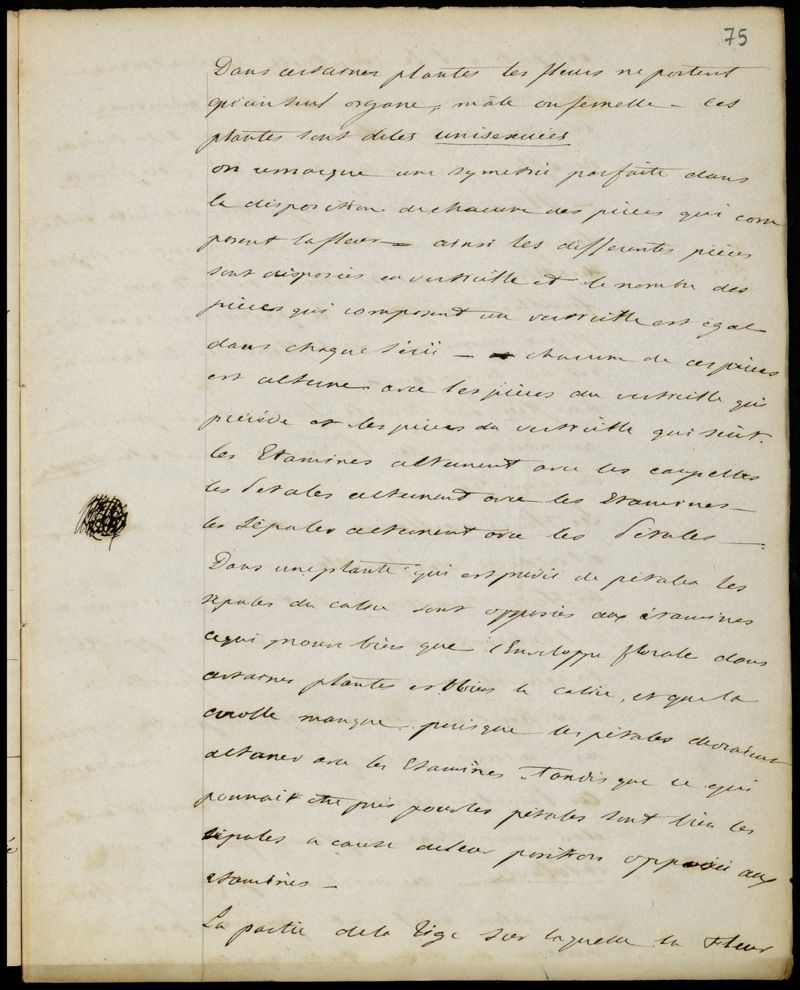 75
Dans certaines plantes les fleurs ne portent
qu'un seul organe, mâle ou femelle - ces
plantes sont dites unisexuées
on remarque une symetrie parfaite dans
la disposition de chacune des pièces qui com
posent la fleur - ainsi les differentes pièces
sont disposées en verticille et le nombre des
pièces qui composent un verticille est égal
dans chaque série - chacune de ces pièces
est alterne avec les pièces du verticille qui
précède et les pièces du verticille qui suit.
les Etamines alternent avec les carpelles
les Petales alternent avec les Etamines -
les Sépales alternent avec les Petales -
Dans une plante qui est privée de pétales les
sépales du calice sont opposées aux étamines
ce qui prouve bien que l'Enveloppe florale dans
certaines plantes est bien le calice, et que la
corolle manque puisque les pétales devraient
alterner avec les Etamines. Tandis que ce qui
pourrait être pris pour les pétales sont bien les
sépales a cause de leur position opposée aux
etamines -
La partie de la Tige sur laquelle la Fleur